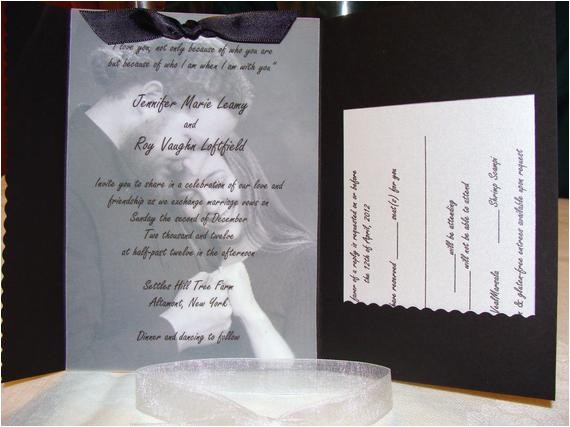 "I love you, not only because of who you are
but because of who I am when I am with you"
Jennifer Marie Leamy
and
Roy Vaughn Loftfield
Invite you to share in a celebration of our love and
friendship as we exchange marriage vows on
Sunday the second of December
Two thousand and twelve
at half-past twelve in the afternoon
Settles Hill Tree Farm
Altamont, New York
Dinner and dancing to follow
favor of a reply is requested on or before
the 12th of April, 2012
have reserved ______ seat(s) for you
______will be attending
______will not be able to attend
Veal Marsala ______Shrimp Scampi
& gluti-free entrees available upon request